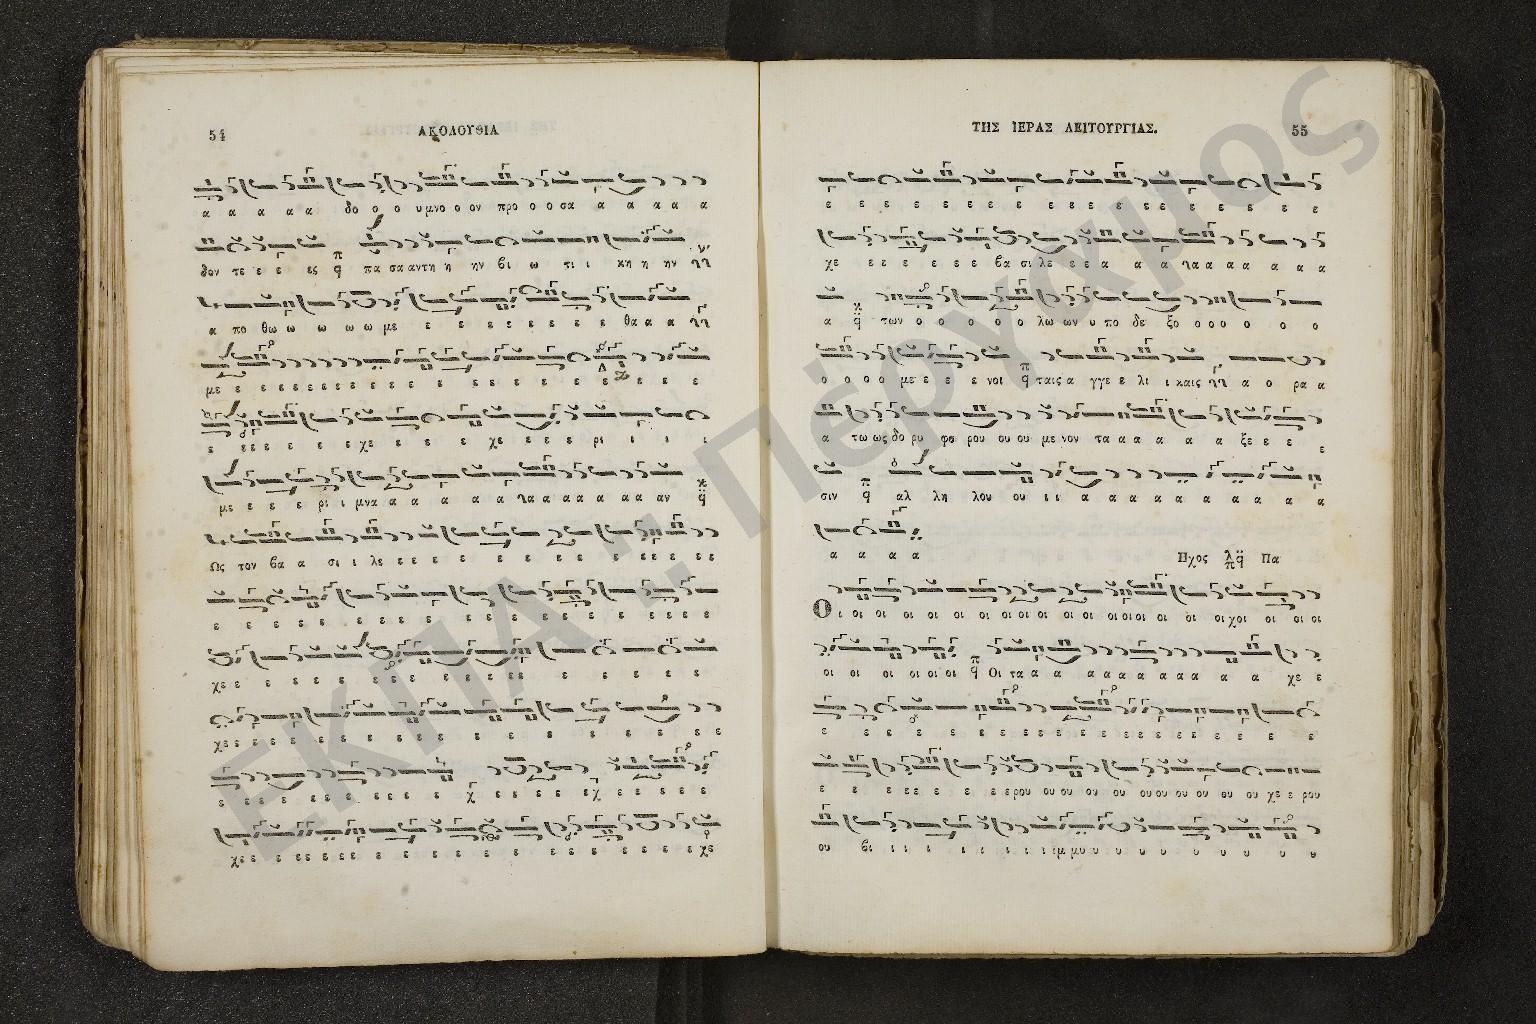 54
ΑΚΟΛΟΥΘΙΑ
α α α α α α δο ο ο υ μνο ο ον προ ο ο σα α α α α α
δον τε ε ε ες πα σα αν τη η ην βι ω τι ι κη η ην
α πο θω ω ω ω ω με ε ε ε ε ε ε ε ε θα α α
με ε ε ε ε ε ε ε ε ε ε ε ε ε ε ε ε ε ε ε ε
ε ε ε ε ε ε ε χε ε ε ε χε ε ε ε ρι ι ι ι ι
με ε ε ε ρι ι μνα α α α α α α α α α α α αν
Ως τον βα α σι ι λε ε ε ε ε ε ε ε ε ε ε ε
ε ε ε ε ε ε ε ε ε ε ε ε ε ε ε ε
χε ε ε ε ε ε ε ε ε ε ε ε ε ε ε ε ε
χε ε ε ε ε ε ε ε ε ε ε ε ε ε ε ε
ε ε ε ε ε ε ε ε ε ε χ ε ε ε ε χ ε ε ε ε ε
χε ε ε ε ε ε ε ε ε ε ε ε ε ε ε ε ε ε χε
ΤΗΣ ΙΕΡΑΣ ΛΕΙΤΟΥΡΓΙΑΣ.
55
ε ε ε ε ε ε ε ε ε ε ε ε ε ε ε ε ε ε
χε ε ε ε ε ε ε βα σι λε ε ε α α α α α α α α α
α των ο ο ο ο ο λω ων υ πο δε ξο ο ο ο ο ο ο
ο ο ο ο με ε ε ε νοι ταις α γγε ε λι ι καις α ο ρα α
α τω ως δο ρυ φο ρου ου ου με νον τα α α α α α ξε ε ε ε
σιν αλ λη λου ου ι ι α α α α α α α α α α α
α α α α
Ηχος Πα
Οι οι οι οι οι οι οι οι οι οι οι οι οι οι οι οι οι χοι οι οι οι
οι οι οι οι οι οι Οι τα α α α α α α α α α α α χε ε
ε ε ε ε ε ε ε ε ε ε ε ε ε ε ε ε ε
ε ε ε ε ε ε ε ε ε ρου ου ου ου ου ου ου ου ου ου ου χε ε ρου
ου βι ι ι ι ι ι ι ι ι ιμ μυ υ υ υ υ υ υ υ υ υ
ΕΚΠΑ :: Πέργαμος